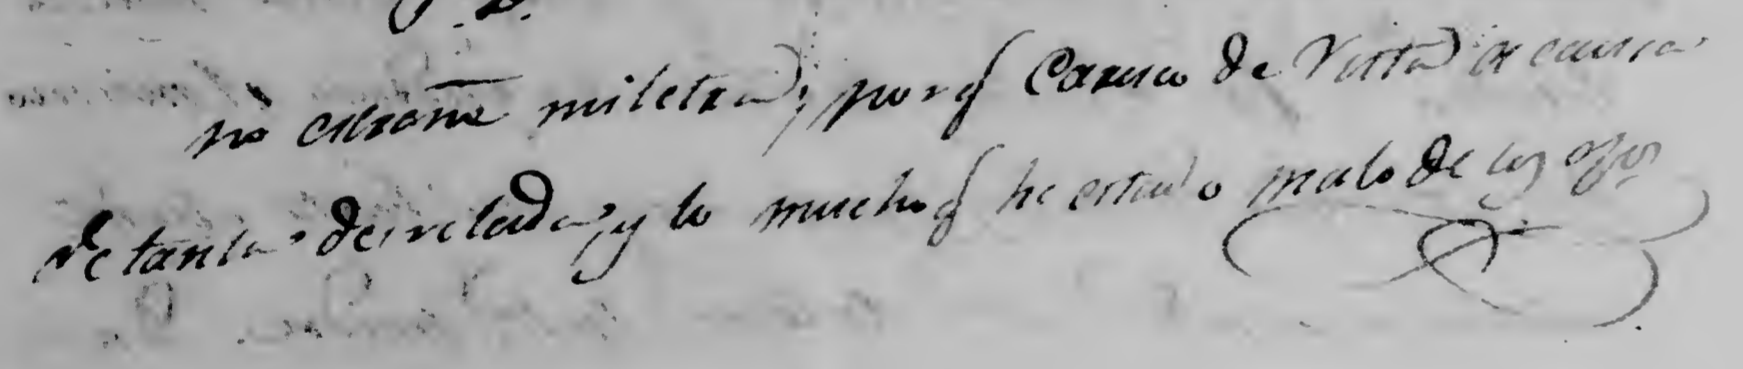 P. D.
no estrañe mi letra, porq caresco de vista a causa
de tantas desveladas, y lo mucho q he estado malo de los ojos